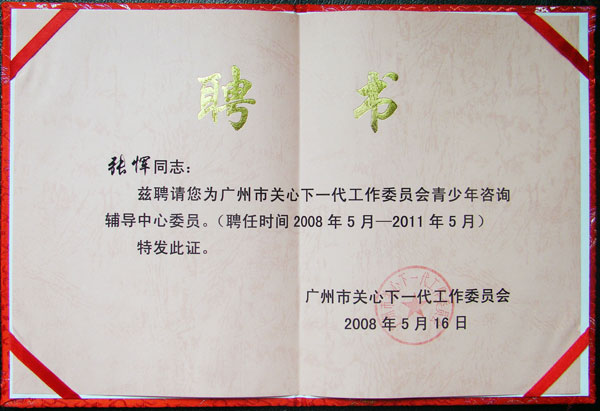 聘 书
张恽同志：
兹聘请您为广州市关心下一代工作委员会青少年咨询
辅导中心委员。（聘任时间2008年5月—2011年5月）
特发此证。
广州市关心下一代工作委员会
2008年5月16日